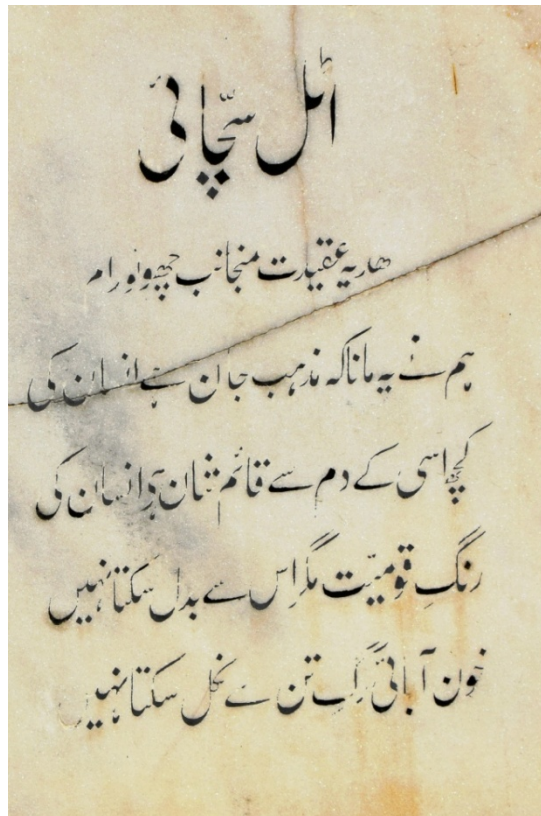 اٹل سچّائی
ھدیہ عقیدت منجانب چھوٹو رام
ہم نے یہ مانا کہ مذہب جان ہے انسان کی
کچھ اسی کے دم سے قائم شان ہے انسان کی
رنگِ قومیّت مگر اِس سے بدل سکتا نہیں
خون آبائی رگِ تن سے نکل سکتا نہیں